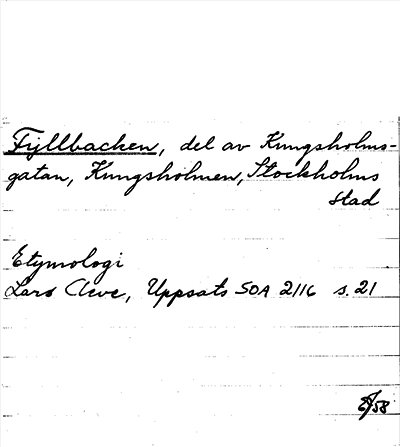 Fyllbacken, del av Kungsholms-
gatan, Kungsholmen, Stockholms
stad
Etymologi
Lars Cleve, Uppsats SOA 2116 s. 21
/58